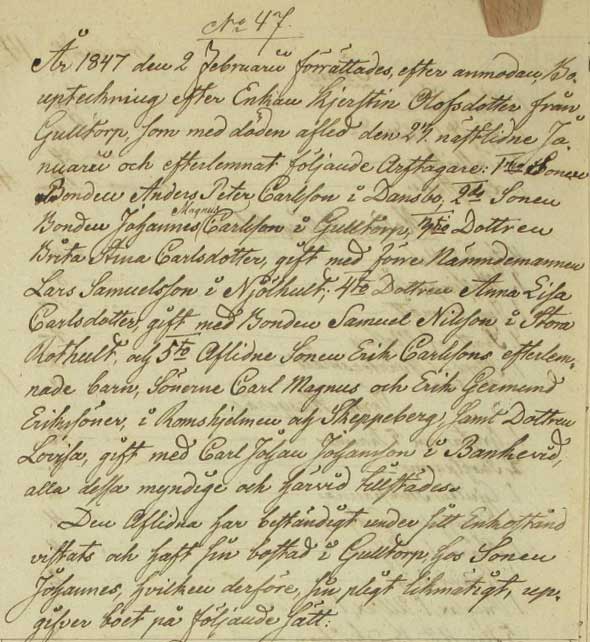 No 47.
År 1847 den 2 Februarii förrättades, efter anmodan, Bo-
uptechning efter Enkan Kjerstin Olofsdotter från
Gulltorp, som med döden afled den 27. nästlidne Ja-
nuarii och efterlemnat följande Arftagare: 1mo Sonen
Bonden Anders Peter Carlsson i Dansbo, 2do Sonen
Magnus
Bonden Johannes Carlsson i Gulltorp, 3tio Dottren
Brita Stina Carlsdotter, gift med förre Nämndemannen
Lars Samuelsson i Njölhult; 4to Dottren Anna Lisa
Carlsdotter, gift med Bonden Samuel Nilsson i Stora
Rothult, och 5to Aflidne Sonen Erik Carlssons efterlem-
nade barn, Sönerne Carl Magnus och Erik Germund
Erikssöner, i Romshjelmen och Skeppeberg, samt Dottren
Lovisa, gift med Carl Johan Johansson i Bankevid,
alla dessa myndige och härvid tillstädes.
Den Aflidna har beständigt under sitt Enkestånd
vistats och haft sin bostad i Gulltorp hos Sonen
Johannes, hvilken derföre, sin pligt likmätigt, up-
gifver boet på följande sätt: